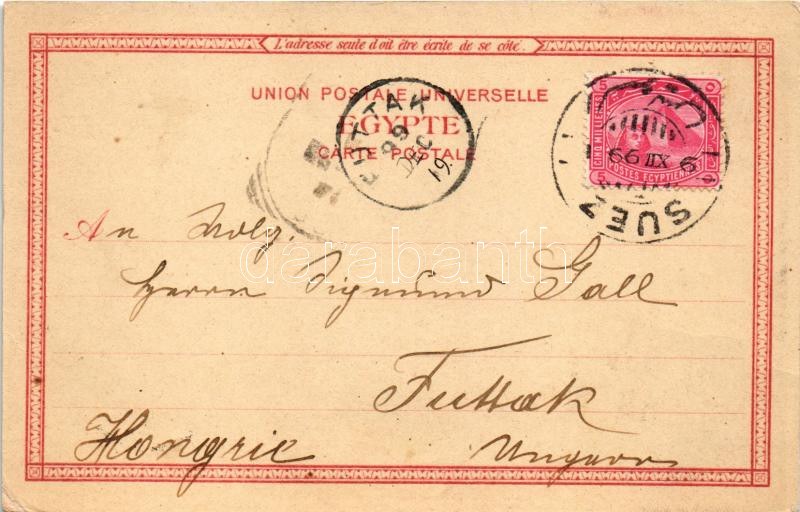 L'adresse seule doit être écrite de ce côté.
UNION POSTALE UNIVERSELLE
EGYPTE
CARTE POSTALE
FUTTAK
99
DEC
19.
5 5
CINQ MILLIEMES
POSTES EGYPTIENNES
5 5
9 XII 99
SUEZ
An Wolg.
Herrn Sigmund Gall
Futtak
Hongrie Ungarn
darabanth